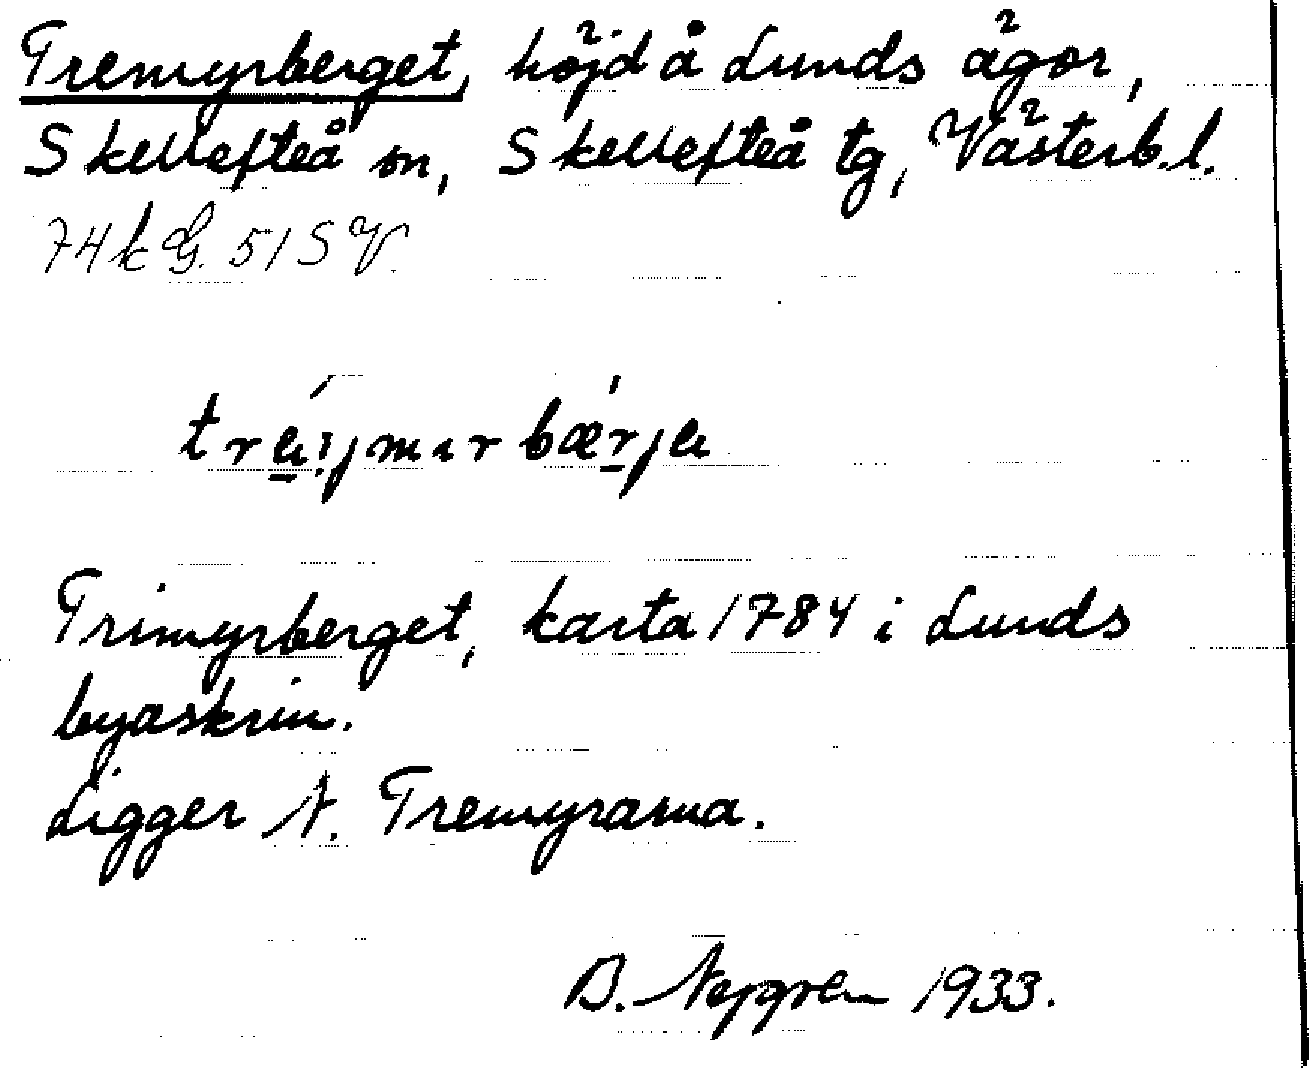 Tremyrberget, höjd å Lunds ägor,
Skellefteå sn, Skellefteå tg, Västerb.l.
74 k G. 51 SV.
Trimyrberget, karta 1784 i Lunds
byaskrin.
Ligger N. Tremyrarna.
B. 1933.